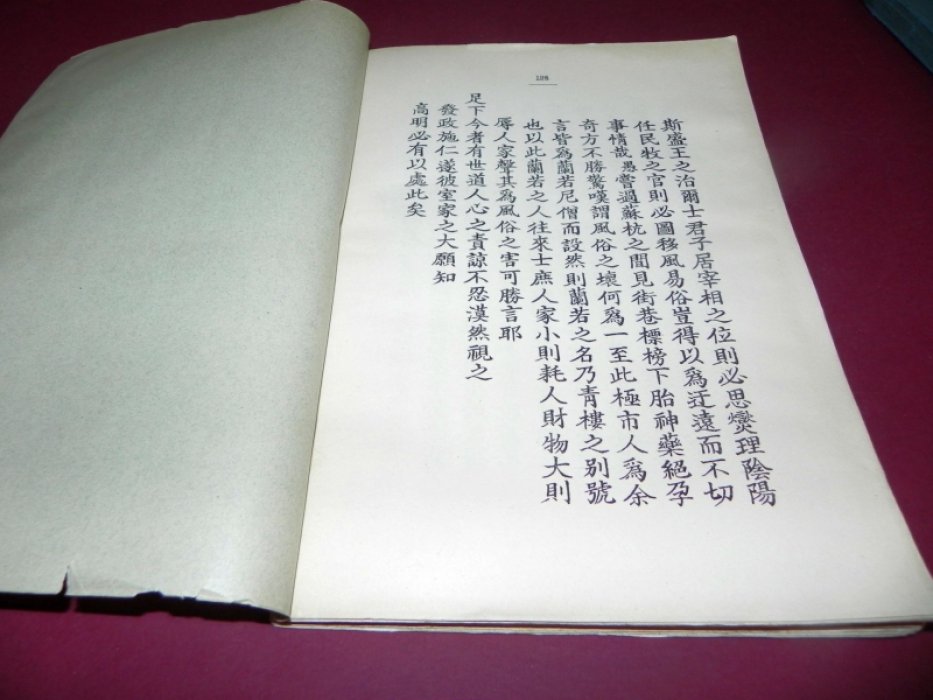 128
斯盛王之治爾士君子居宰相之位則必思燮理陰陽
任民牧之官則必圖移風易俗豈得以爲迂遠而不切
事情哉愚嘗過蘇杭之間見街巷標榜下胎神藥絕孕
奇方不勝驚嘆謂風俗之壞何爲一至此極市人爲余
言皆爲蘭若尼僧而設然則蘭若之名乃青樓之別號
也以此蘭若之人往來士庶人家小則耗人財物大則
辱人家聲其爲風俗之害可勝言耶
足下今者有世道人心之責諒不忍漠然視之
發政施仁遂彼室家之大願知
高明必有以處此矣